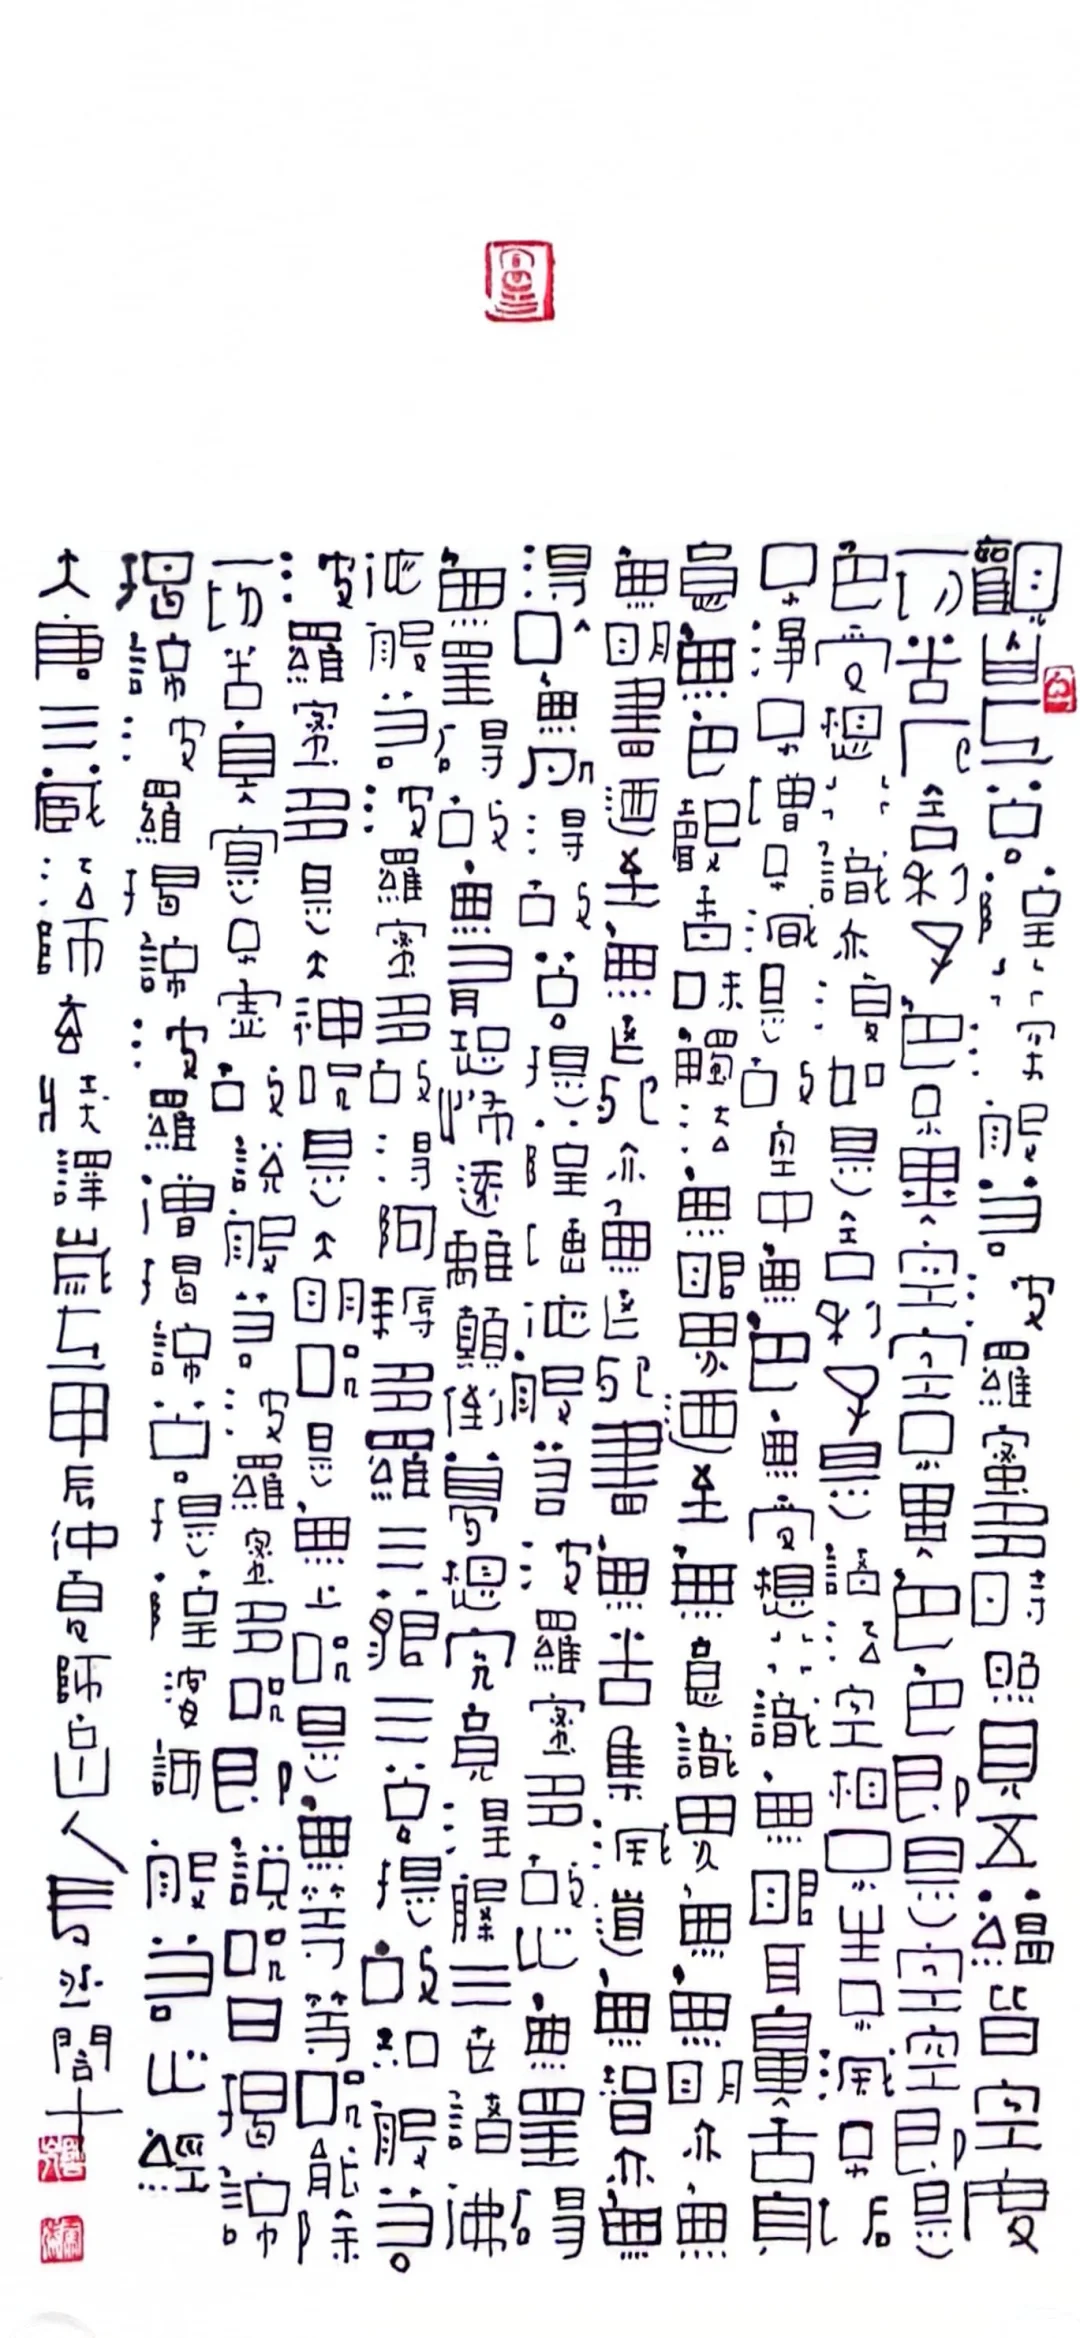 觀自在菩薩行深般若波羅蜜多時照見五蘊皆空度
一切苦厄舍利子色不異空空不異色色即是空空即是
色受想行識亦復如是舍利子是諸法空相不生不滅不垢
不淨不增不減是故空中無色無受想行識無眼耳鼻舌身
意無色聲香味觸法無眼界乃至無意識界無無明亦無
無明盡乃至無老死亦無老死盡無苦集滅道無智亦無
得以無所得故菩提薩埵依般若波羅蜜多故心無罣
罣礙無罣礙故無有恐怖遠離顛倒夢想究竟涅槃三世諸佛
依般若波羅蜜多故得阿耨多羅三藐三菩提故知般若
波羅蜜多是大神咒是大明咒是無上咒是無等等咒能除
一切苦真實不虛故說般若波羅蜜多咒即說咒曰揭諦
揭諦波羅揭諦波羅僧揭諦菩提薩婆訶般若心經
大唐三藏法師玄奘譯歲在甲辰仲夏師山人